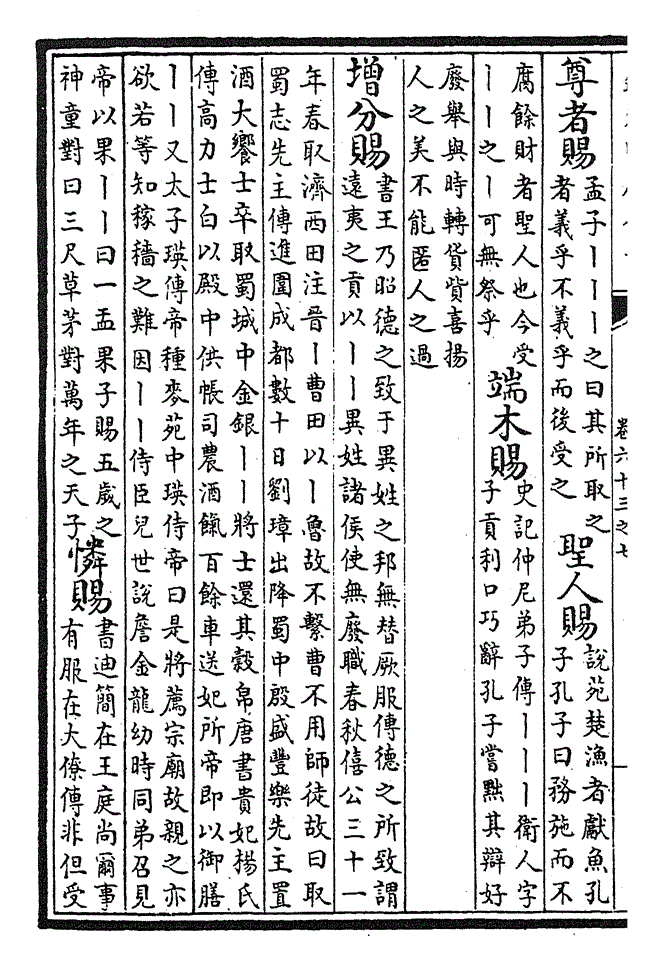 卷六十三之七
尊者賜孟子丨丨丨之曰其所取之
者義乎不義乎而後受之
聖人賜說苑楚漁者獻魚孔
子孔子曰務施而不
腐餘財者聖人也今受
丨丨之丨可無祭乎
端木賜史記仲尼弟子傳丨丨丨衛人字
子貢利口巧辭孔子嘗黜其辯好
廢舉與時轉貨貲喜揚
人之美不能匿人之過
增分賜書王乃昭德之致于異姓之邦無替厥服傳德之所致謂
遠夷之貢以丨丨異姓諸侯使無廢職春秋僖公三十一
年春取濟西田注晉丨曹田以丨魯故不繫曹不用師徒故曰取
蜀志先主傳進圍成都數十日劉璋出降蜀中殷盛豐樂先主置
酒大饗士卒取蜀城中金銀丨丨將士還其穀帛唐書貴妃楊氏
傳高力士白以殿中供帳司農酒餼百餘車送妃所帝即以御膳
丨丨又太子瑛傳帝種麥苑中瑛侍帝曰是將薦宗廟故親之亦
欲若等知稼穡之難因丨丨侍臣兒世說詹金龍幼時同弟召見
帝以果丨丨曰一盂果子賜五歲之
神童對曰三尺草茅對萬年之天子
憐賜書迪簡在王庭尚爾事
有服在大僚傳非但受